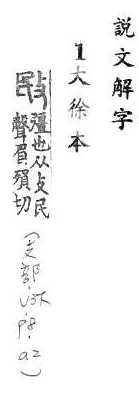 說文解字
1大徐本
敃 彊也从攴民
聲眉殞切
(攴部.V3下.P8.a2)